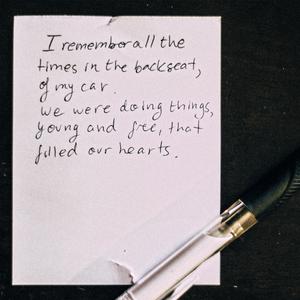 I remember all the
times in the backseat,
of my car.
we were doing things,
young and free, that
filled our hearts.